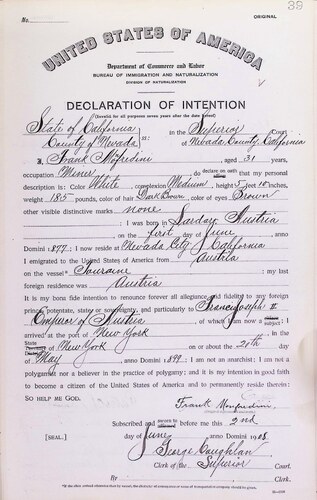 39
No.
ORIGINAL
UNITED STATES OF AMERICA
Department of Commerce and Labor
BUREAU OF IMMIGRATION AND NATURALIZATION
DIVISION OF NATURALIZATION
DECLARATION OF INTENTION
(Invalid for all purposes seven years after the date hereof)
State of California
County of Nevada ss: in the Superior Court
of Nevada County, California
I, Frank, aged 31 years,
occupation Miner, do declare on oath that my personal
description is: Color White, complexion Medium, height 5 feet 10 inches,
weight 185 pounds, color of hair Dark Brown, color of eyes Brown
other visible distinctive marks none
; I was born in Austria
, on the first day of June, anno
Domini 1877; I now reside at Nevada City, California
I emigrated to the United States of America from Austria
on the vessel Touraine; my last
foreign residence was Austria
It is my bona fide intention to renounce forever all allegiance and fidelity to any foreign
prince, potentate, state, or sovereignty, and particularly to Francis Joseph II
Emperor of Austria, of which I am now a subject; I
arrived at the port of New York, in the
State of New York on or about the day
of May, anno Domini 1899; I am not an anarchist; I am not a
polygamist nor a believer in the practice of polygamy; and it is my intention in good faith
to become a citizen of the United States of America and to permanently reside therein:
SO HELP ME GOD.
Frank
Subscribed and sworn to before me this 2nd
[SEAL.] day of June, anno Domini 1908
George Coughlan
Clerk of the Superior Court.
By, Clerk.